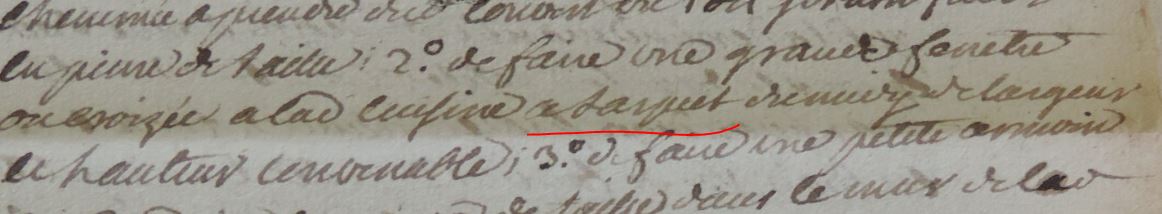 cheminée a prendre du
en pierre de taille ; 2.° de faire une grande fenetre
ou croizée a lad cuisine a laspect du midy de largeur
et hauteur convenable ; 3.° de faire une petite
de taille dans le mur de lad